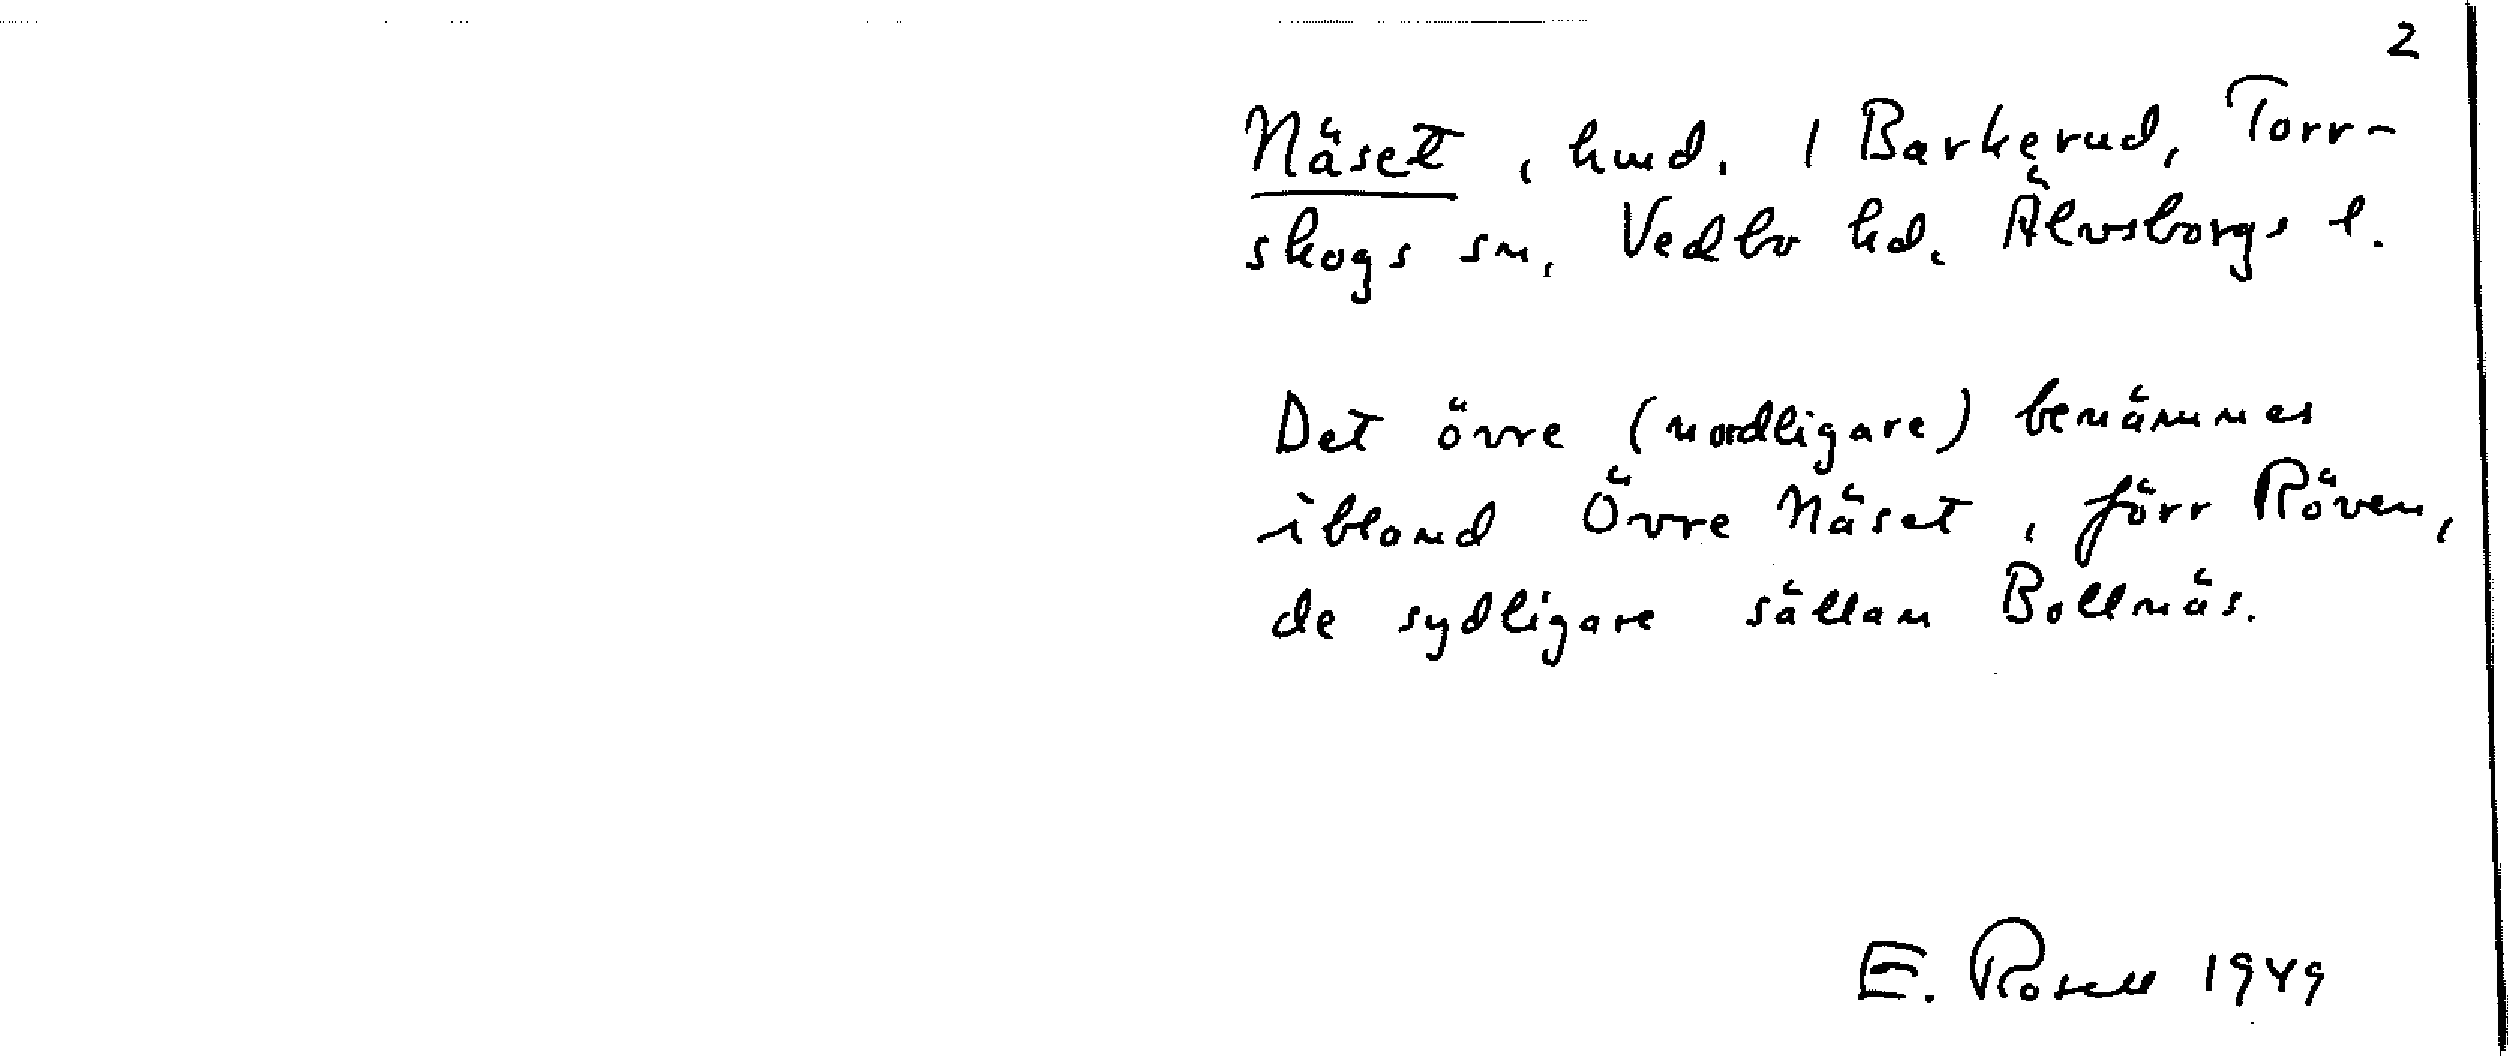 2
Näset, hmd. 1 Barkerud, Torr-
skogs sn, Vedbo hd. Älvsborgs l.
Det övre (nordligare) benämnes
ibland Övre Näset, förr Röven,
de sydligare sällan Bollnäs.
E. Rosell 1949